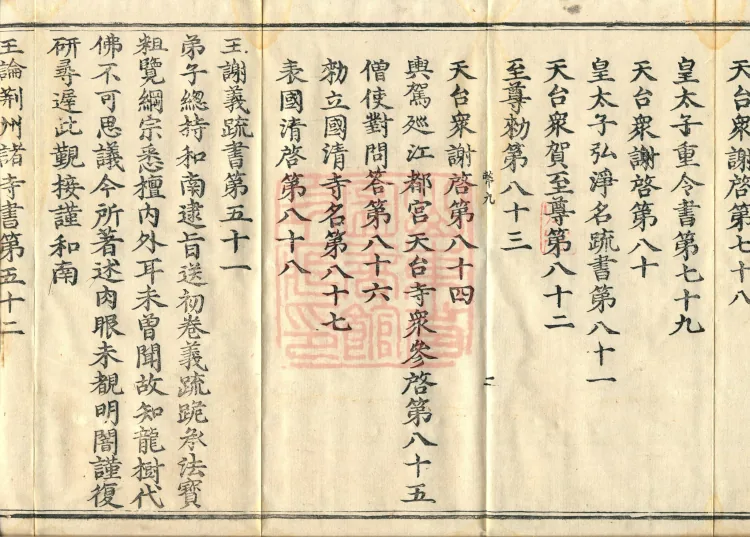 天台衆謝啓第七十八
皇太子重令書第七十九
天台衆謝啓第八十
皇太子弘淨名疏書第八十一
天台衆賀至尊第八十二
至尊勑第八十三
天台衆謝啓第八十四
輿駕廵江都宮天台寺衆參啓第八十五
僧使對問荅第八十六
勑立國清寺名第八十七
表國清啓第八十八
王謝義疏書第五十一
弟子緫持和南逮旨送初卷義疏跪承法寶
粗覽綱宗悉檀內外耳未曾聞故知龍樹代
佛不可思議今所著述肉眼未覩明闇謹復
研尋遲此覲接謹和南
王論荆州諸寺書第五十二